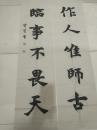 作人唯師古
臨事不畏天